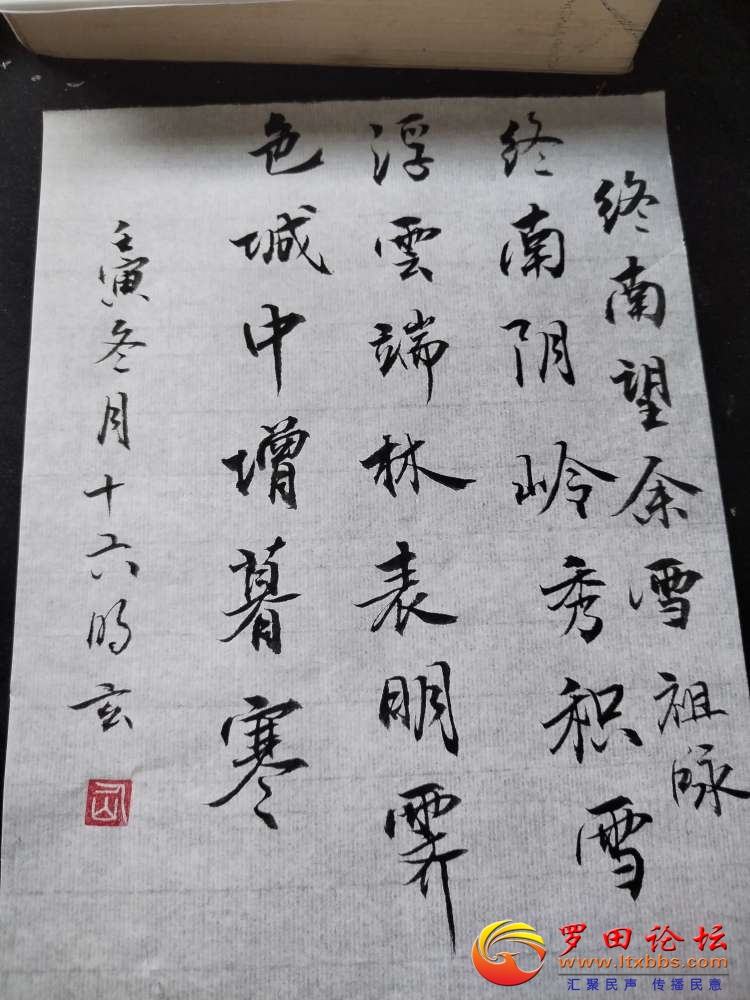 终南望余雪 祖咏
终南阴岭秀积雪
浮雲端林表明霁
色城中增暮寒
壬寅冬月十六明玄
罗田论坛
www.ltxbbs.com
汇聚民声 传播民意